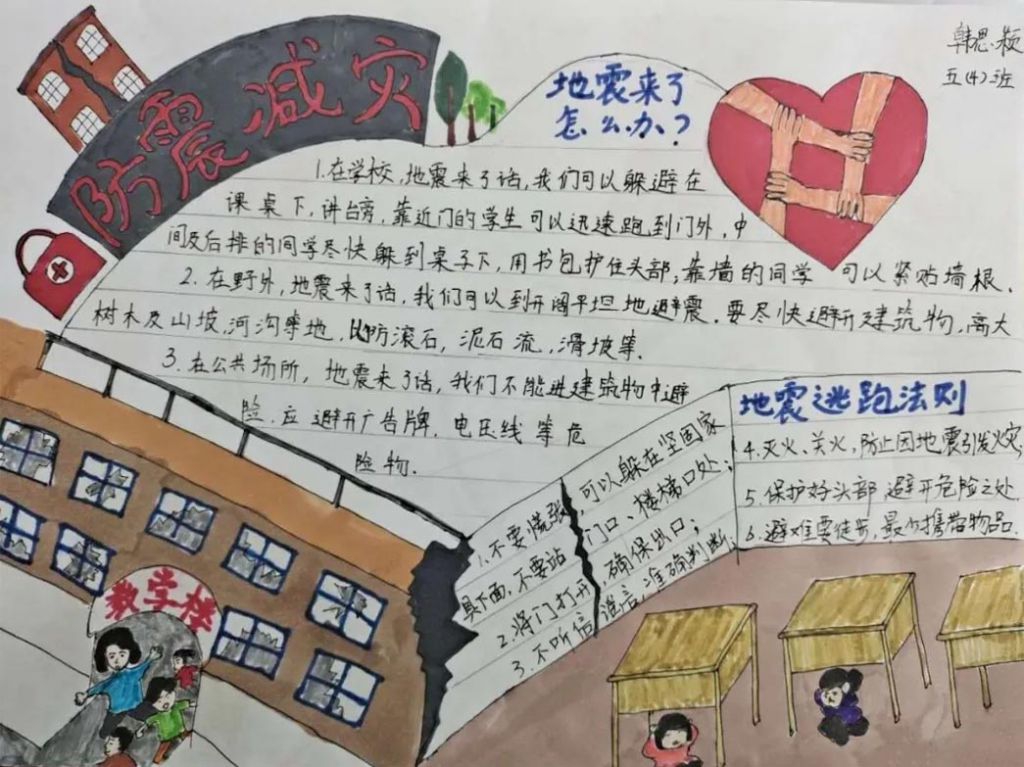 防震减灾
韩思颖
五(4)班
地震来了
怎么办?
1.在学校,地震来了话,我们可以躲避在
课桌下,讲台旁,靠近门的学生可以迅速跑到门外,中
间及后排的同学尽快躲到桌子下,用书包护住头部,靠墙的同学可以紧贴墙根.
2.在野外,地震来了话,我们可以到开阔平坦地避震.要尽快避开建筑物,高大
树木及山坡,河沟等地,以防滚石,泥石流,滑坡等.
3.在公共场所,地震来了话,我们不能进建筑物中避
险.应避开广告牌.电压线等危
险物.
地震逃跑法则
1.不要慌张,可以躲在坚固家
具下面,不要站门口、楼梯口处;
2.将门打开,确保出口;
3.不听信谣言,准确判断;
4.灭火、关火,防止因地震引发火灾;
5.保护好头部避开危险之处.
6.避难要徒步,最少携带物品.
教学楼